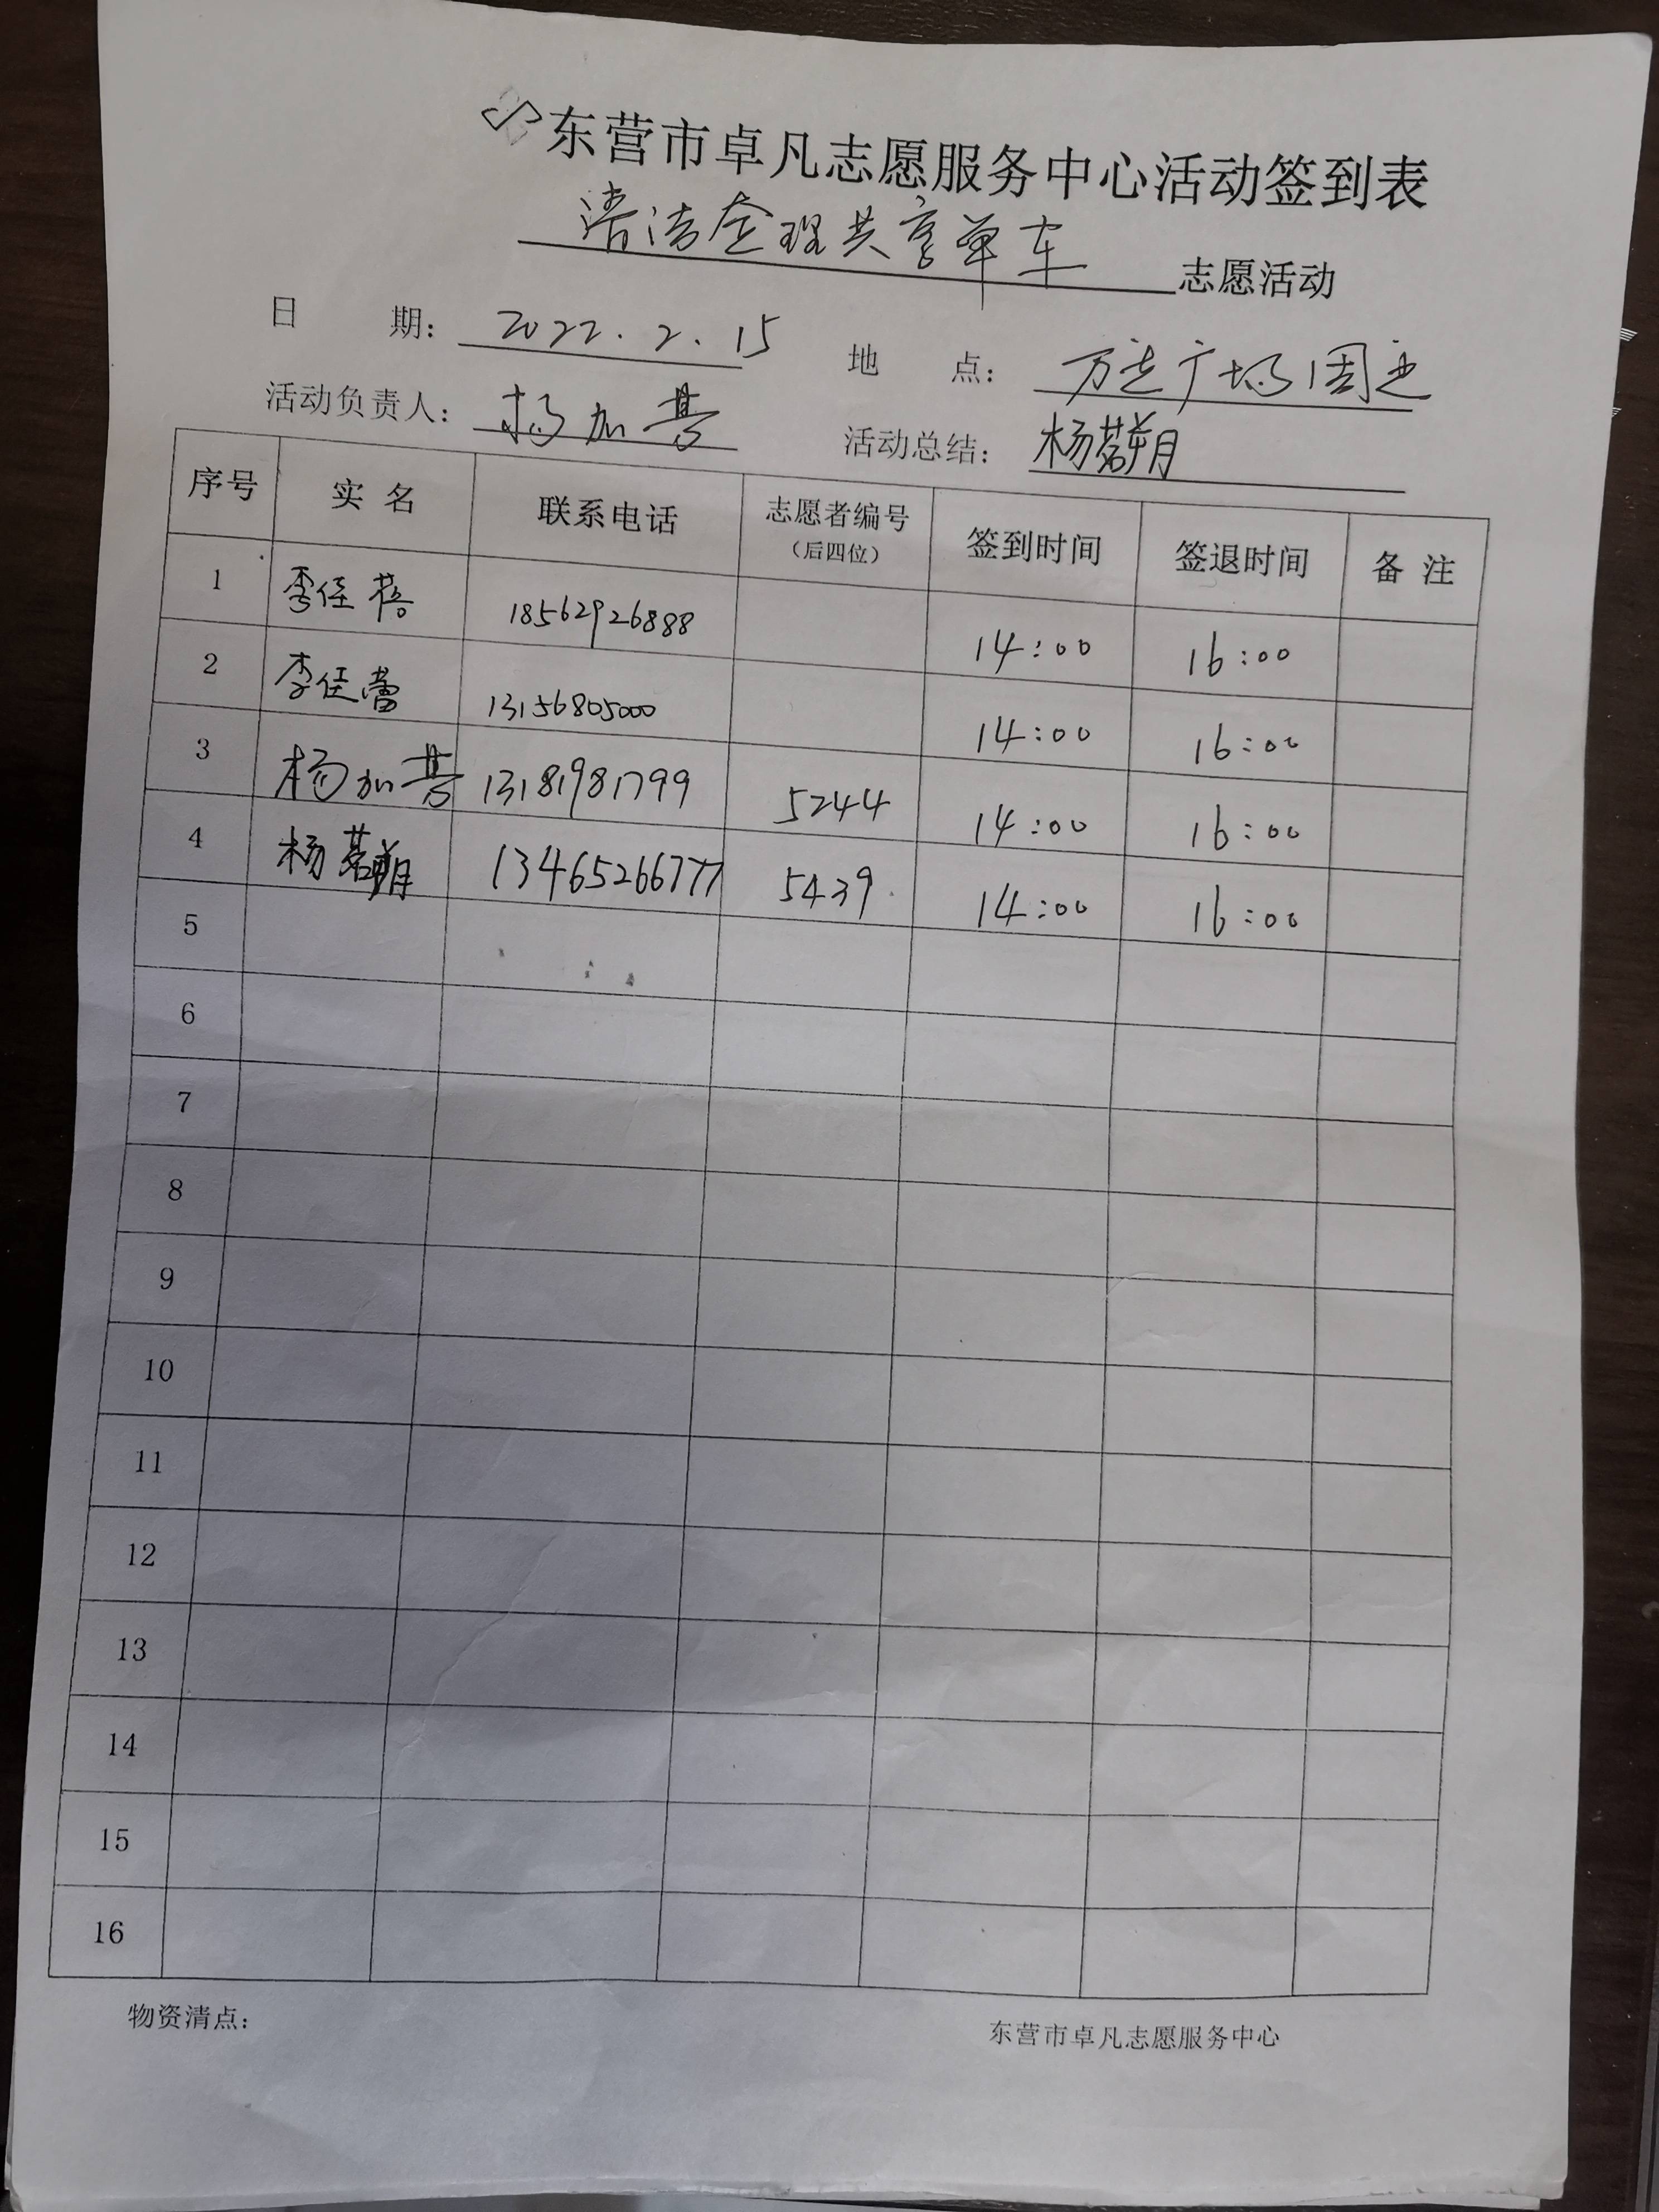 东营市卓凡志愿服务中心活动签到表
清洁整理共享单车 志愿活动
日 期： 2022.2.15 地 点： 万达广场周边
活动负责人： 杨加 活动总结： 杨
序号 实名 联系电话 志愿者编号（后四位） 签到时间 签退时间 备注
1 李佳 18562926888 14:00 16:00
2 李佳 13156805000 14:00 16:00
3 杨加 13181981799 5244 14:00 16:00
4 杨 13465266777 5439 14:00 16:00
5
6
7
8
9
10
11
12
13
14
15
16
物资清点： 东营市卓凡志愿服务中心